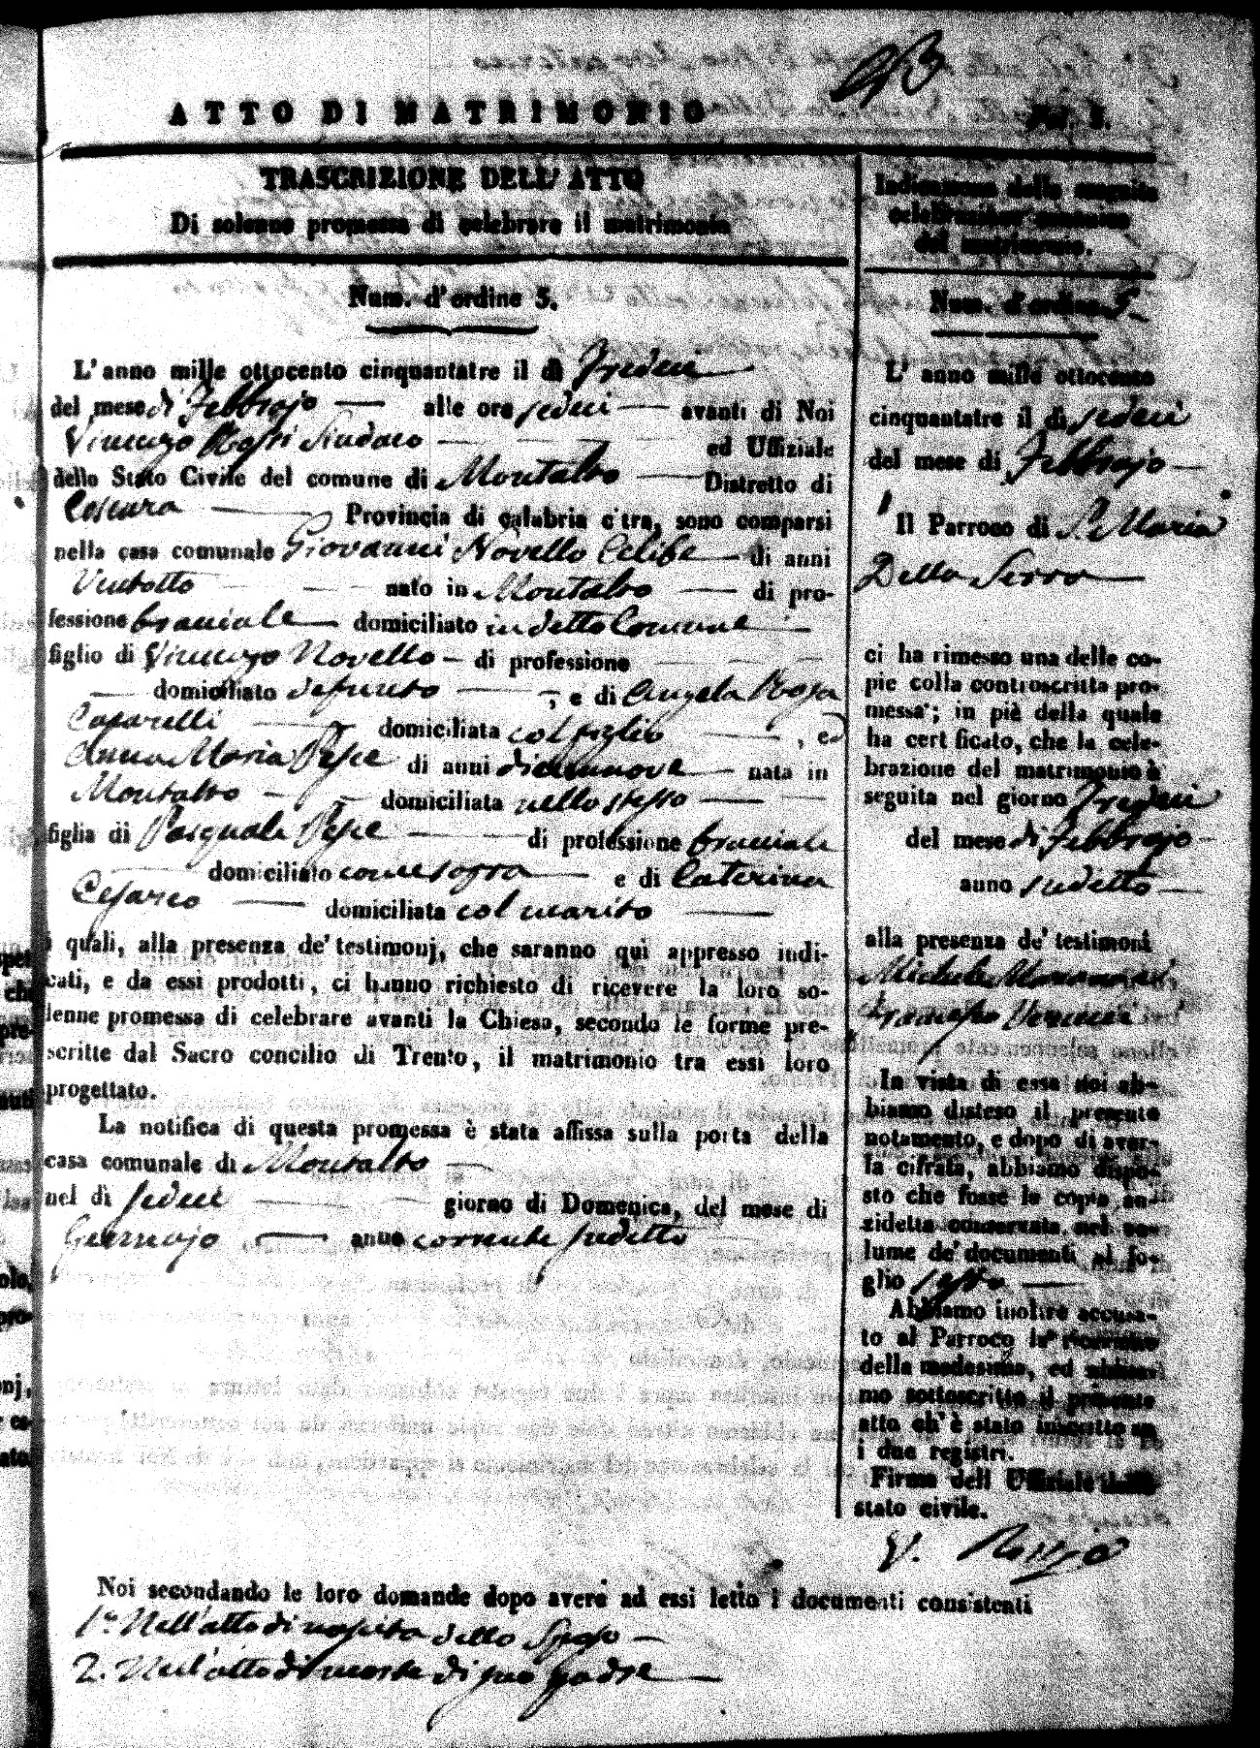 ATTO DI MATRIMONIO
TRASCRIZIONE DELL' ATTO
Di solenne promessa di celebrare il matrimonio
Num. d'ordine 5.
L'anno mille ottocento cinquantatre il dì Tredeci
del mese di Febbrajo alle ore sedeci avanti di Noi
Vincenzo Sindaco ed Uffiziale
dello Stato Civile del comune di Montalto Distretto di
Cosenza Provincia di calabria citra, sono comparsi
nella casa comunale Giovanni Novello Celibe di anni
Ventotto nato in Montalto di pro-
fessione bracciale domiciliato in detto Comune
figlio di Vincenzo Novello di professione
domiciliato defunto , e di Angela Rosa
domiciliata col figlio , ed
Anna Maria Pepe di anni diecinnove nata in
Montalto domiciliata nello stesso
figlia di Pasquale Pepe di professione bracciale
domiciliato come sopra e di Caterina
Cesario domiciliata col marito
i quali, alla presenza de' testimonj, che saranno qui appresso indi-
cati, e da essi prodotti, ci hanno richiesto di ricevere la loro so-
lenne promessa di celebrare avanti la Chiesa, secondo le forme pre-
scritte dal Sacro concilio di Trento, il matrimonio tra essi loro
progettato.
La notifica di questa promessa è stata affissa sulla porta della
casa comunale di Montalto
nel dì sedeci giorno di Domenica, del mese di
Gennajo anno corrente sudetto
Indicazione della seguita
celebrazione canonica
del matrimonio.
Num. d'ordine 5
L' anno mille ottocento
cinquantatre il dì sedeci
del mese di Febbrajo
Il Parroco di S. Maria
Della Serra
ci ha rimesso una delle co-
pie colla controscritta pro-
messa; in piè della quale
ha cert ficato, che la cele-
brazione del matrimonio è
seguita nel giorno Tredeci
del mese di Febbrajo
anno sudetto
alla presenza de' testimoni
Michele
Francesco
In vista di essa noi ab-
biamo disteso il presente
notamento, e dopo di aver-
la cifrata, abbiamo dispo-
sto che fosse la copia an-
zidetta conservata nel vo-
lume de' documenti al fo-
glio sesto
Abbiamo inoltre accusa-
to al Parroco la ricevuta
della medesima, ed abbia-
mo sottoscritto il presente
atto ch' è stato inscritto su
i due registri.
Firma dell Uffiziale dello
stato civile.
V. Rossi
Noi secondando le loro domande dopo avere ad essi letto i documenti consistenti
1.° Nell'atto di nascita dello Sposo
2. Nell'atto di morte di suo padre